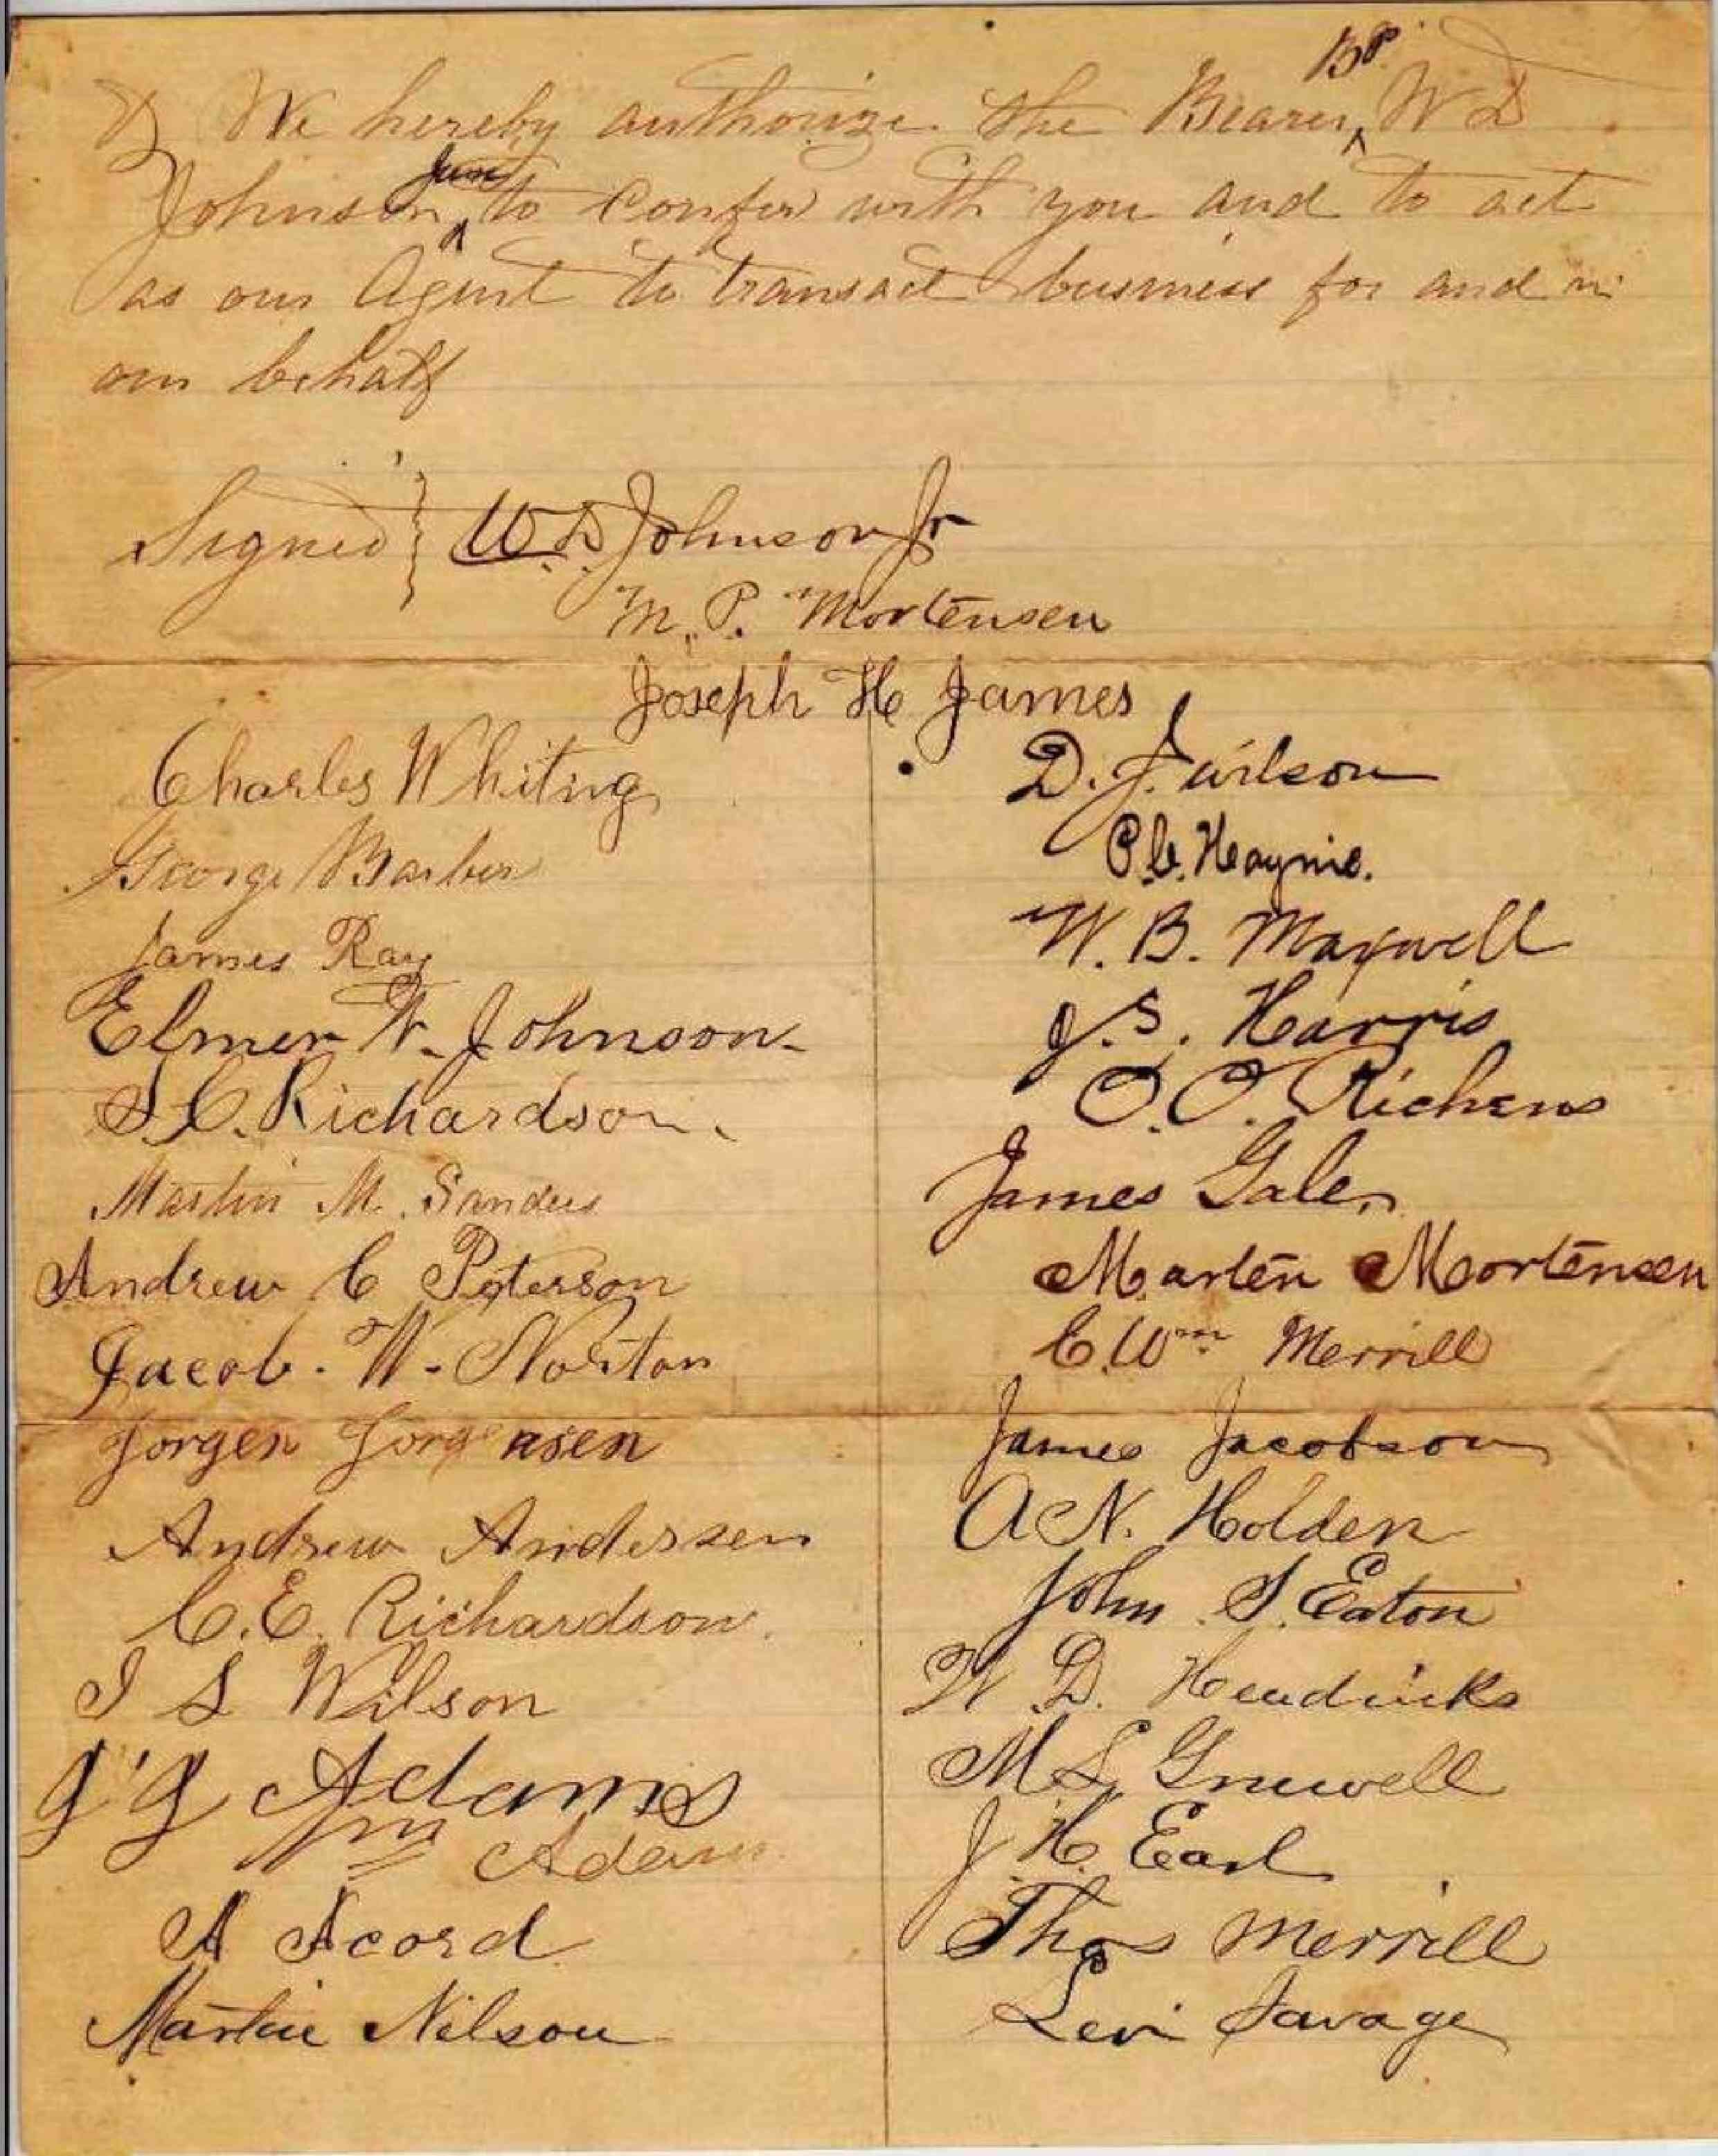 BP.
We hereby authorize the Bearer, W D
Johnson Jun to confer with you and to act
as our Agent to transact business for and in
our behalf
Signed W. D. Johnson Jr
M. P. Mortensen
Joseph H James
Charles Whiting
George Barber
James Ray
Elmer W. Johnson.
S. C. Richardson.
Martin M. Sanders
Andrew C Peterson
Jacob. W. Norton
Jorgen Jorgensen
Andrew Anderssen
C. E. Richardson.
I S Wilson
J J Adams
Adams
A Acord
Martin Nilson
D. J. Wilson
P. C. Haynie.
W. B. Maxwell
J. S. Harris
O. O. Richens
James Gale
Marten Mortensen
C. Wm Merrill
James Jacobson
A N. Holden
John S. Eaton
W. D. Hendricks
M L Gruwell
J H. Earl
Thos Merrill
Levi Savage